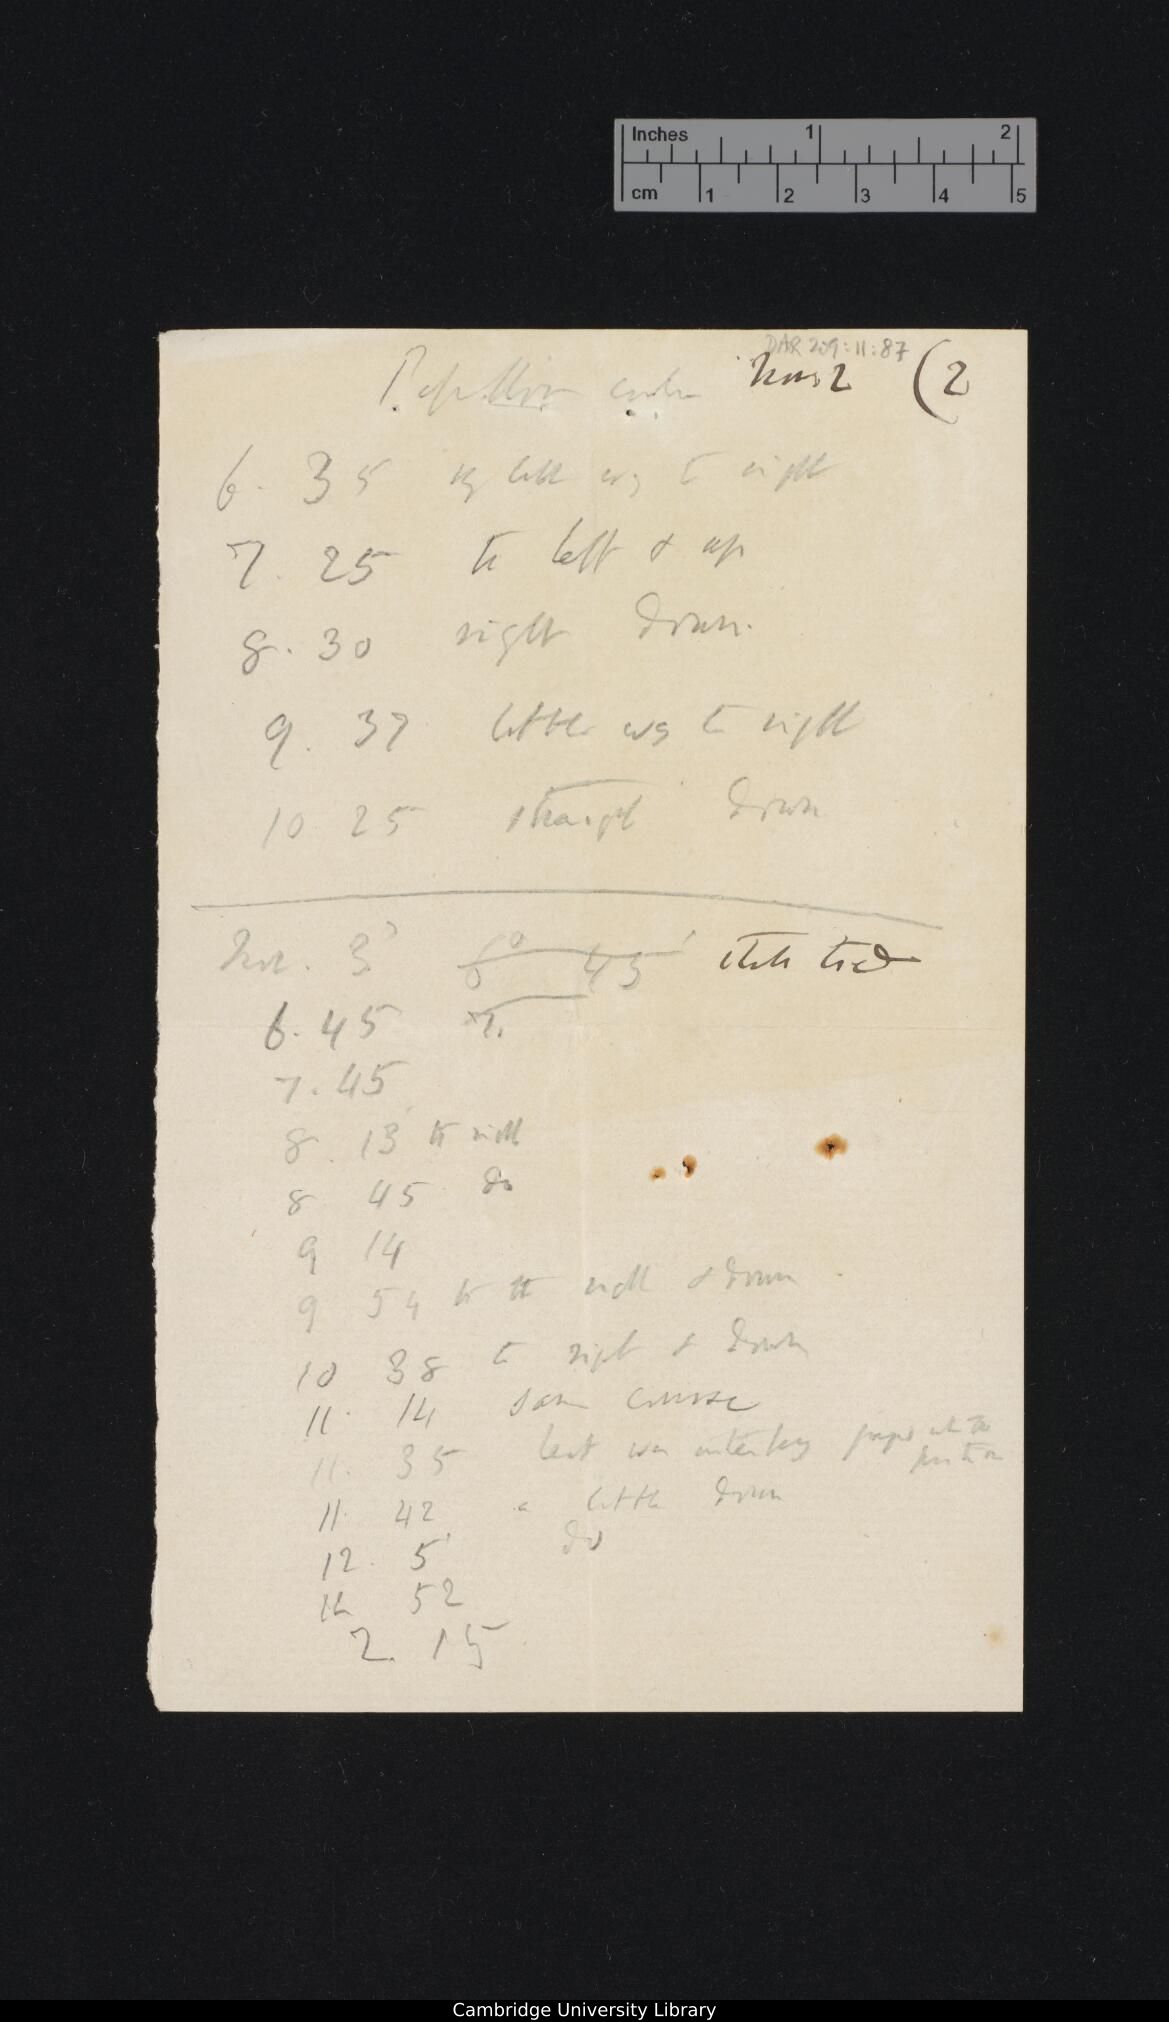 Inches 1 2
cm 1 2 3 4 5
DAR 209:11:87
(2
6. 35 to right
7. 25 to left & up
8. 30 right down.
9. 37 little way to right
10 25 straight down
Nov. 3 6° 45'
6. 45 7.
7. 45
8. 13 to right
8 45 do
9 14
9 54 to the right & down
10 38 to right & down
11. 14 same course
11. 35
11. 42 a little down
12. 5 do
52
2. 15
Cambridge University Library